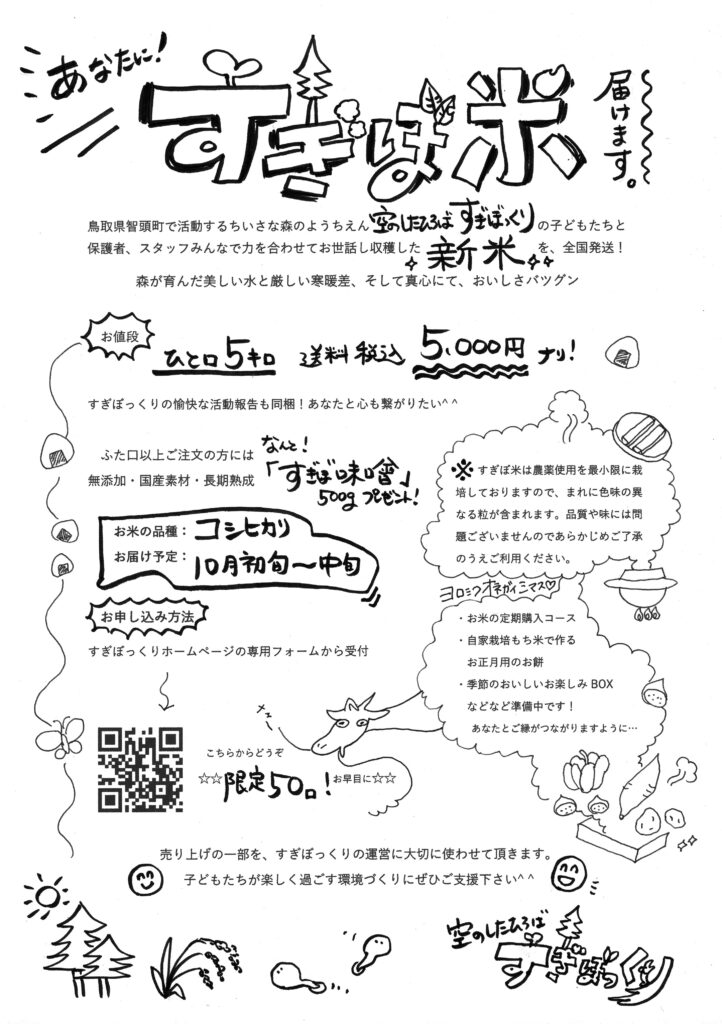 あなたに!
すぎぼ米
届けます。
鳥取県智頭町で活動するちいさな森のようちえん 空のしたひろば すぎぼっくり の子どもたちと
保護者、スタッフみんなで力を合わせてお世話し収穫した 新米 を、全国発送!
森が育んだ美しい水と厳しい寒暖差、そして真心にて、おいしさバツグン
お値段 ひと口5キロ 送料税込 5,000円 ナリ!
すぎぼっくりの愉快な活動報告も同梱!あなたと心も繋がりたい^ ^
ふた口以上ご注文の方には なんと!
無添加・国産素材・長期熟成 「すぎぼ味噌」
500g プレゼント!
お米の品種: コシヒカリ
お届け予定: 10月初旬〜中旬
※ すぎぼ米は農薬使用を最小限に栽
培しておりますので、まれに色味の異
なる粒が含まれます。品質や味には問
題ございませんのであらかじめご了承
のうえご利用ください。
ヨロシクオネガイシマス♡
お申し込み方法
すぎぼっくりホームページの専用フォームから受付
・お米の定期購入コース
・自家栽培もち米で作る
お正月用のお餅
・季節のおいしいお楽しみ BOX
などなど準備中です!
あなたとご縁がつながりますように…
メェ〜
こちらからどうぞ
☆☆限定50口!お早目に☆☆
売り上げの一部を、すぎぼっくりの運営に大切に使わせて頂きます。
子どもたちが楽しく過ごす環境づくりにぜひご支援下さい^ ^
空のしたひろば
すぎぼっくり